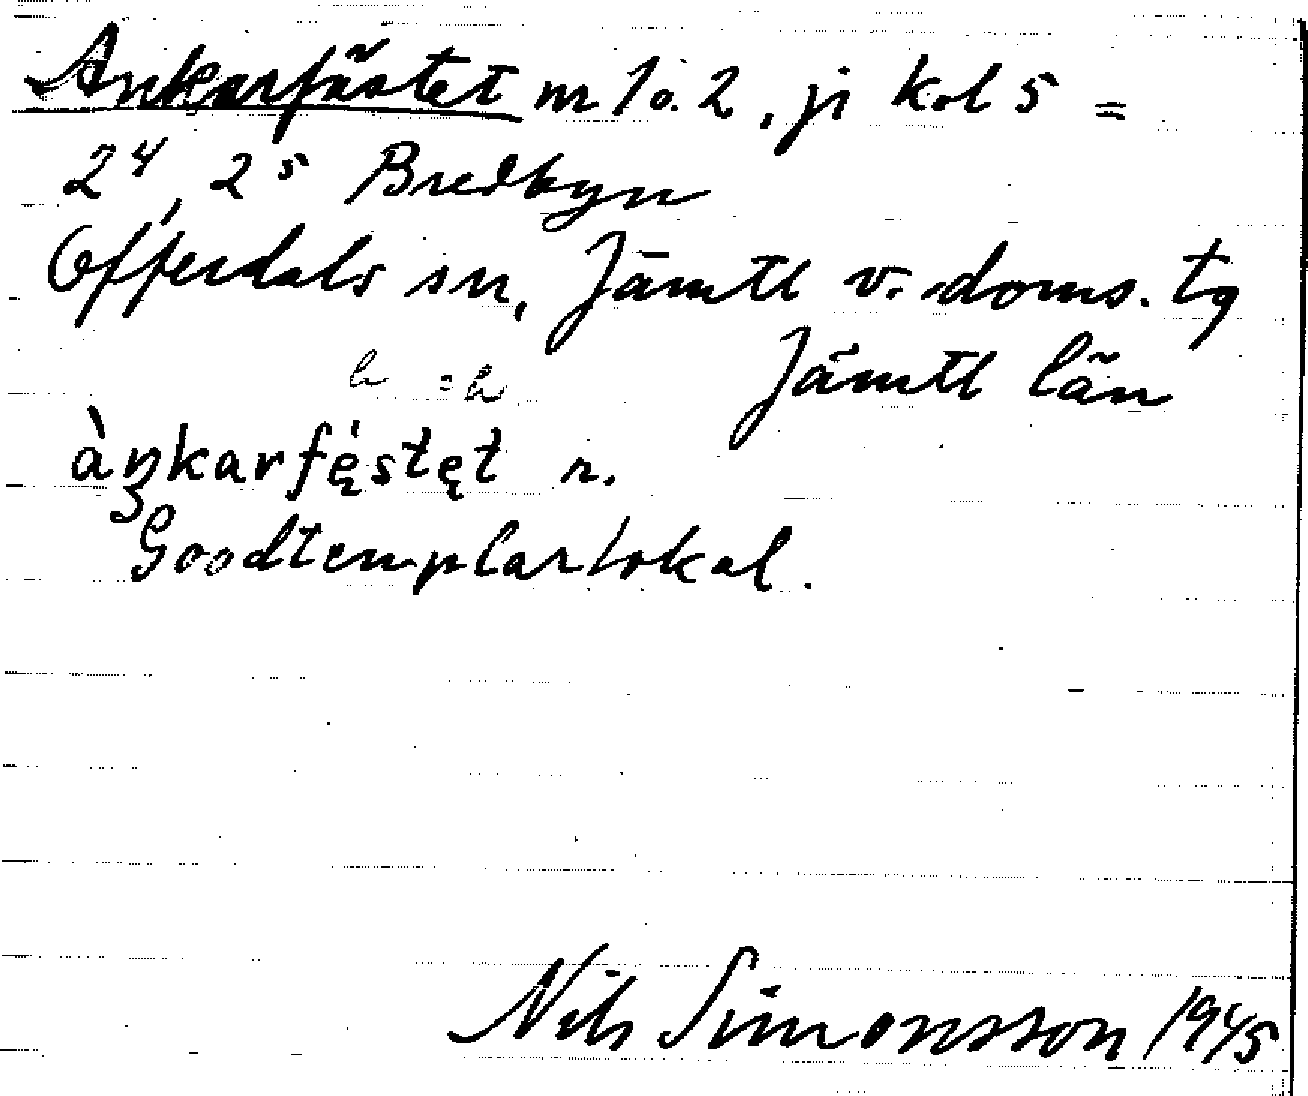 Ankarfästet nr 1 o. 2, ji kol 5 =
2⁴, 2⁵ Bredbyn
Offerdals sn, Jämtl v. doms. tg
Jämtl län
àŋkarfę̀stęt n.
Goodtemplarlokal.
Nils Simonsson 1945